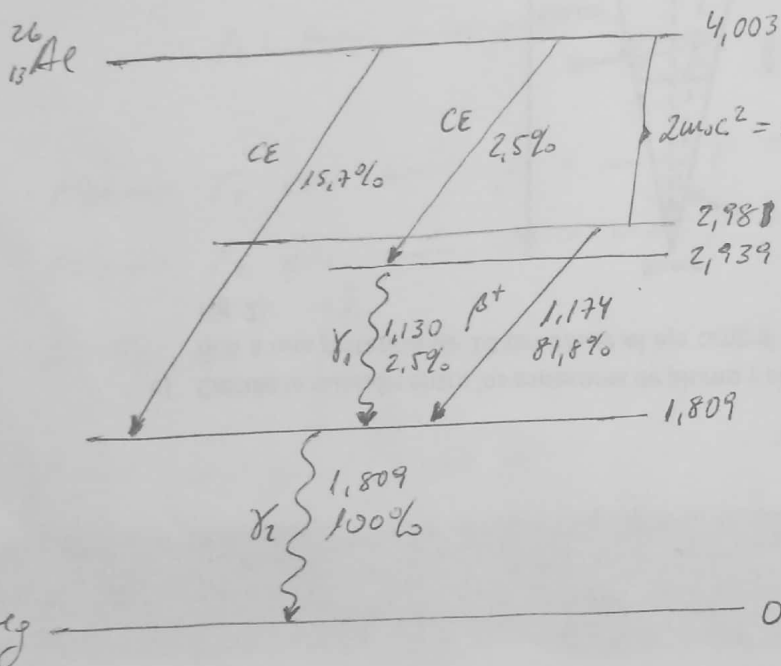 26
13 Al
4,003
CE
15,7%
CE
2,5%
2m₀c² =
2,981
2,939
γ₁
1,130
2,5%
β⁺
1,174
81,8%
1,809
γ₂
1,809
100%
0